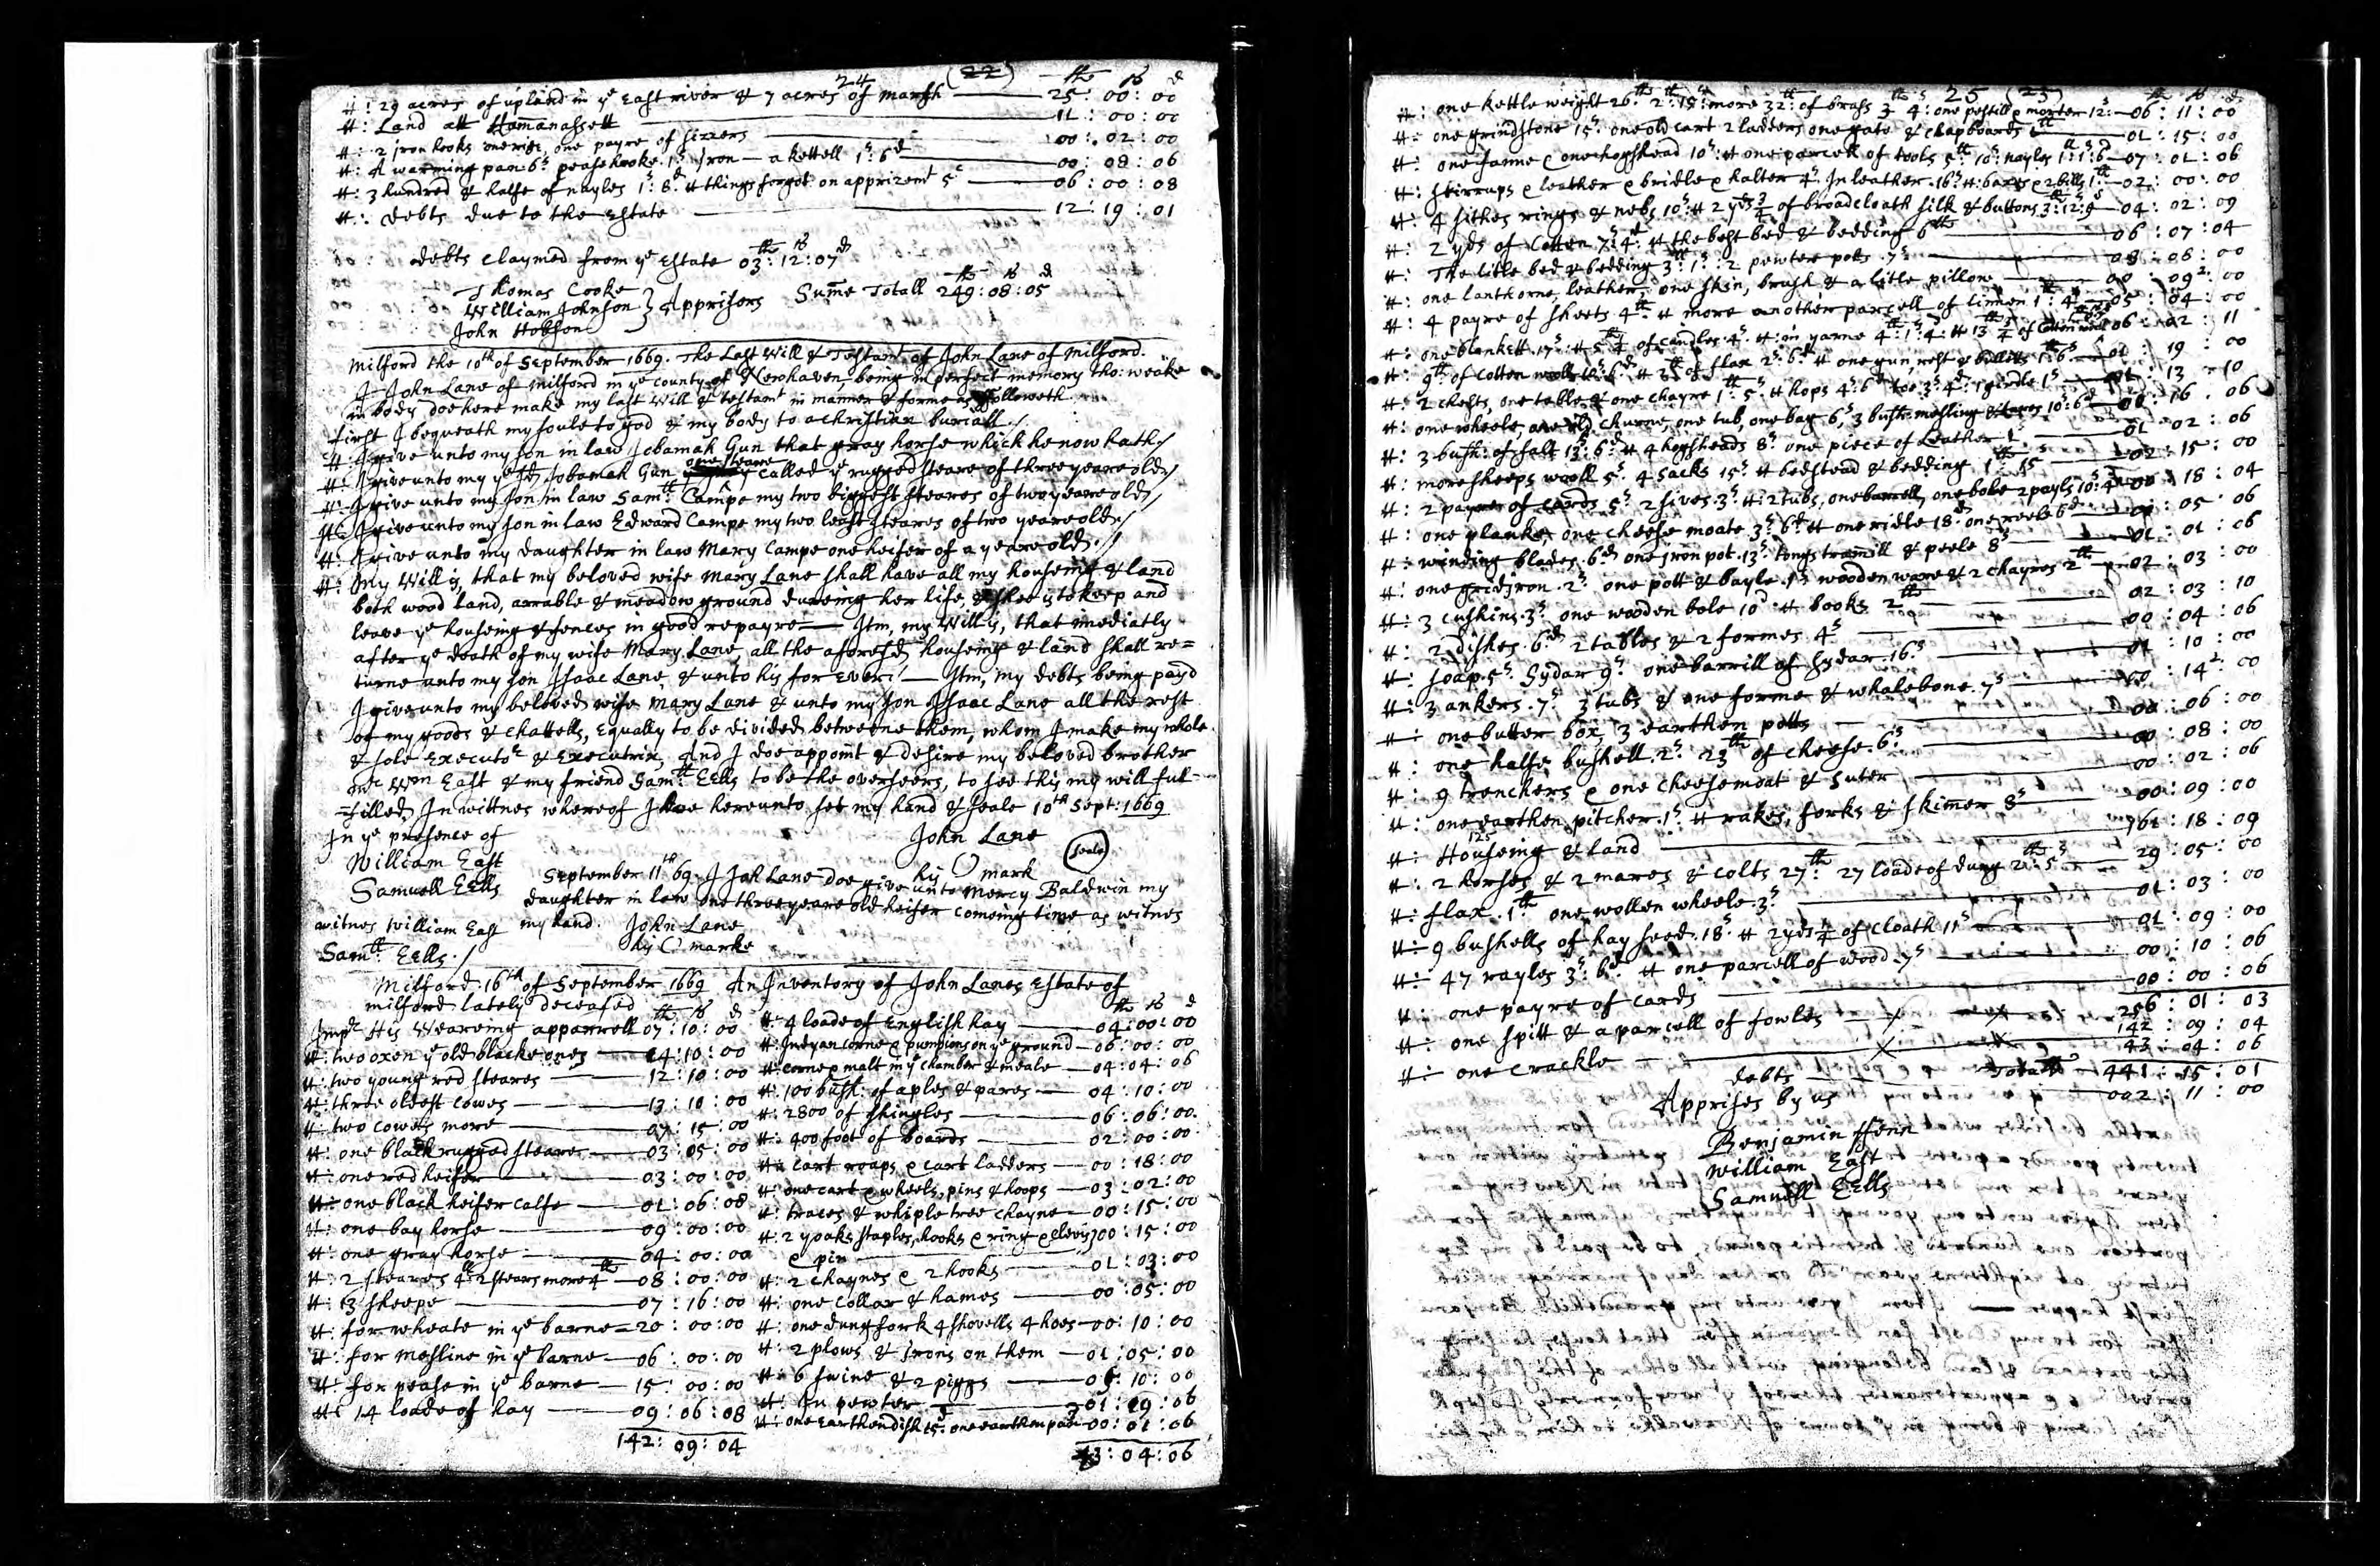 24 (22) ₶ s d
It: 29 acres of upland in ye East river & 7 acres of marsh — 25: 00: 00
It: Land att Homanassett — 11: 00: 00
It: 2 Iron hooks one , one payre of sizzers — 00: 02: 00
It: A warming pan: 6s pease hooke 1s Iron — a kettell 1s: 6d — 00: 08: 06
It: 3 hundred & halfe of nayles 1s: 8d It things forgot on apprizemt 5 — 06: 00: 08
It: Debts due to the Estate — 12: 19: 01
Debts claymed from ye Estate 03: 12: 07
Thomas Cooke
William Johnson } Apprisors Sume Totall 249: 08: 05
John Hobson
Milford the 10th of September 1669. The Last Will & Testamt of John Lane of Milford.
I John Lane of Milford in ye county of Newhaven, being in perfect memory tho: weake
in body doe here make my last will & testamt in manner & forme as followeth
first I bequeath my soule to god & my body to a christian buriall /
It: I give unto my son in law Jobamah Gun that gray horse which he now hath /
It: I give unto my ye sd Jobamah Gun one steare called ye rugged steare of three yeare old /
It: I give unto my son in law Samll Campe my two biggest steares of two yeare old /
It: I give unto my son in law Edward Campe my two least steares of two yeare old /
It: I give unto my daughter in law Mary Campe one heifer of a yeare old /
It: My Will is, that my beloved wife Mary Lane shall have all my houseing & land
both wood land, arrable & meadow ground dureing her life, & shee is to keep and
leave ye houseing & fences in good repayre — Itm, my Will is, that imediatly
after ye death of my wife Mary Lane all the aforesd houseing & land shall re=
turne unto my son Isaac Lane, & unto his for ever: — Itm, my debts being payd
I give unto my beloved wife Mary Lane & unto my son Isaac Lane all the rest
of my goods & chattells, Equally to be divided betweene them, whom I make my whole
& sole Executor & Executrix, And I doe appoint & desire my beloved brother
mr Wm East & my friend Samll Eells to be the overseers, to see this my will ful=
=filled, In wittnes whereof I have hereunto set my hand & seale 10th Sept: 1669
In ye presence of John Lane
William East his mark (seale)
Samuell Eells September 11th 69. I Joh Lane doe give unto Mercy Baldwin my
daughter in law one three yeare old heifer comeing time as witnes
witnes William East my hand. John Lane
Samll Eells. / his marke
Milford. 16th of September 1669 An Inventory of John Lanes Estate of
milford lately deceased ₶ s d
Impr His Weareing apparrell 07: 10: 00
It: two oxen ye old blacke ones — 14: 10: 00
It: two young red steares — 12: 10: 00
It: three oldest cowes — 13: 10: 00
It: two cowes more — 07: 15: 00
It: one black rugged steare — 03: 05: 00
It: one red heifer — 03: 00: 00
It: one black heifer calfe — 01: 06: 08
It: one bay horse — 09: 00: 00
It: one gray horse — 04: 00: 00
It: 2 steares 4₶ 2 stears more 4₶ — 08: 00: 00
It: 13 sheepe — 07: 16: 00
It: for wheate in ye barne — 20: 00: 00
It: for mesline in ye barne — 06: 00: 00
It: for pease in ye barne — 15: 00: 00
It: 14 loade of hay — 09: 06: 08
142: 09: 04
₶ s d
It: 4 loade of English hay — 04: 00: 00
It: Indyan corne & pumpions on ye ground — 06: 00: 00
It: corne & malt in ye chamber & meale — 04: 04: 06
It: 100 bush: of aples & pares — 04: 10: 00
It: 2800 of shingles — 06: 06: 00
It: 400 foot of boards — 02: 00: 00
It: cart roaps & cart ladders — 00: 18: 00
It: one cart & wheels, pins & hoops — 03: 02: 00
It: traces & whiple tree chayne — 00: 15: 00
It: 2 yoaks staples, hooks & ring & clevis 00: 15: 00
& pin
It: 2 chaynes & 2 hooks — 01: 03: 00
It: one collar & hames — 00: 05: 00
It: one dung fork 4 shovells 4 hoes — 00: 10: 00
It: 2 plows & Irons on them — 01: 05: 00
It: 6 swine & 2 piggs — 05: 10: 00
It: In pewter — 01: 19: 06
It: one Earthen dish 15d one earthen pan — 00: 01: 06
43: 04: 06
25 (23) ₶ s d
It: one kettle weight 26₶ 2: 15: more 32₶ of brass 3 4: one pestill & morter 12s — 06: 11: 00
It: one grindstone 15s one old cart 2 ladders one gate & clapboards — 01: 15: 00
It: one fanne & one hogshead 10s: It one parcell of tools 5₶ 10s nayles 1: 1: 6 — 07: 01: 06
It: stirrups & leather & bridle & halter 4s In leather 16s It: & 2 bills 1₶ — 02: 00: 00
It: 4 sithes rings & nebs 10s: It 2 yds 3/4 of broadcloath silk & buttons 3: 12: 9 — 04: 02: 09
It: 2 yds of Cotten 7s: 4d It the best bed & bedding 6₶ — 06: 07: 04
It: The litle bed & bedding 3₶: 1s: 2 pewter potts 7s — 08: 00
It: one lanthorne, leather, one skin, brush & a litle pillow — 00: 09: 00
It: 4 payre of sheets 4₶ It more another parcell of linnen 1: 4 — 05: 04: 00
It: one blankett 17s: It 5 of candles 4s It: in yarne 4: 1: 4: It 13 3/4 of Cotten wool 06: 02: 11
It: 9₶ of Cotten It of flax 2s: 6d It one gun, rest & bulletts 1: 6 — 01: 19: 00
It: 2 chests, one table & one chayre 1₶: 5s It hops 4s: 6d 3s: 4d: 1 girdle 1s — 01: 13: 10
It: one wheele, one old churne, one tub, one bag 6s, 3 bush: mesling & tares 10s: 6d — 16: 06
It: 3 bush: of salt 13s: 6d It 4 hogsheads 8s one piece of Leather 1s — 01: 02: 06
It: more sheeps wooll 5s 4 sacks 15s It bedstead & bedding 1₶ 15s — 02: 15: 00
It: 2 payre of cards 5s 2 sives 3s It: 2 tubs, one barrell, one bole 2 payls 10s: 4d 00: 18: 04
It: one planke, one cheese moate 3s 6d It one ridle 18d one reele 6d — 05: 06
It: winding blades 6d one Iron pot 13s: tongs tramill & peele 8s — 01: 01: 06
It: one gridiron 2s one pott & bayle 1s wooden ware & 2 chayres 2₶ — 02: 03: 00
It: 3 cushins 3s one wooden bole 10d It books 2₶ — 02: 03: 10
It: 2 dishes 6d 2 tables & 2 formes 4s — 00: 04: 06
It: soap 5s Sydar 9s one barrill of Sydar 16s — 01: 10: 00
It: 3 ankers 7s 3 tubs & one forme & whalebone 7s — 00: 14: 00
It: one butter box, 3 earthen potts — 00: 06: 00
It: one halfe bushell 2s 23₶ of cheese 6s — 00: 08: 00
It: 9 trenchers & one cheesemoat & suter — 00: 02: 06
It: one earthen pitcher 1s It rakes, forks & skimer 8s — 00: 09: 00
It: Houseing & land — 161: 18: 09
It: 2 horses & 2 mares & colts 27₶ 27 loade of dung 2: 5 — 29: 05: 00
It: flax 1₶ one wollen wheele 3s — 01: 03: 00
It: 9 bushells of hay seed 18s It 2 yds 1/4 of cloath 11s — 01: 09: 00
It: 47 rayles 3s: 6d It one parcell of wood 7s — 00: 10: 06
It: one payre of cards — 00: 00: 06
It: one spitt & a parcell of fowles — 256: 01: 03
It: one crackle — 142: 09: 04
43: 04: 06
Totall 441: 15: 01
debts — 002: 11: 00
Apprises by us
Benjamin ffenn
William East
Samuell Eells